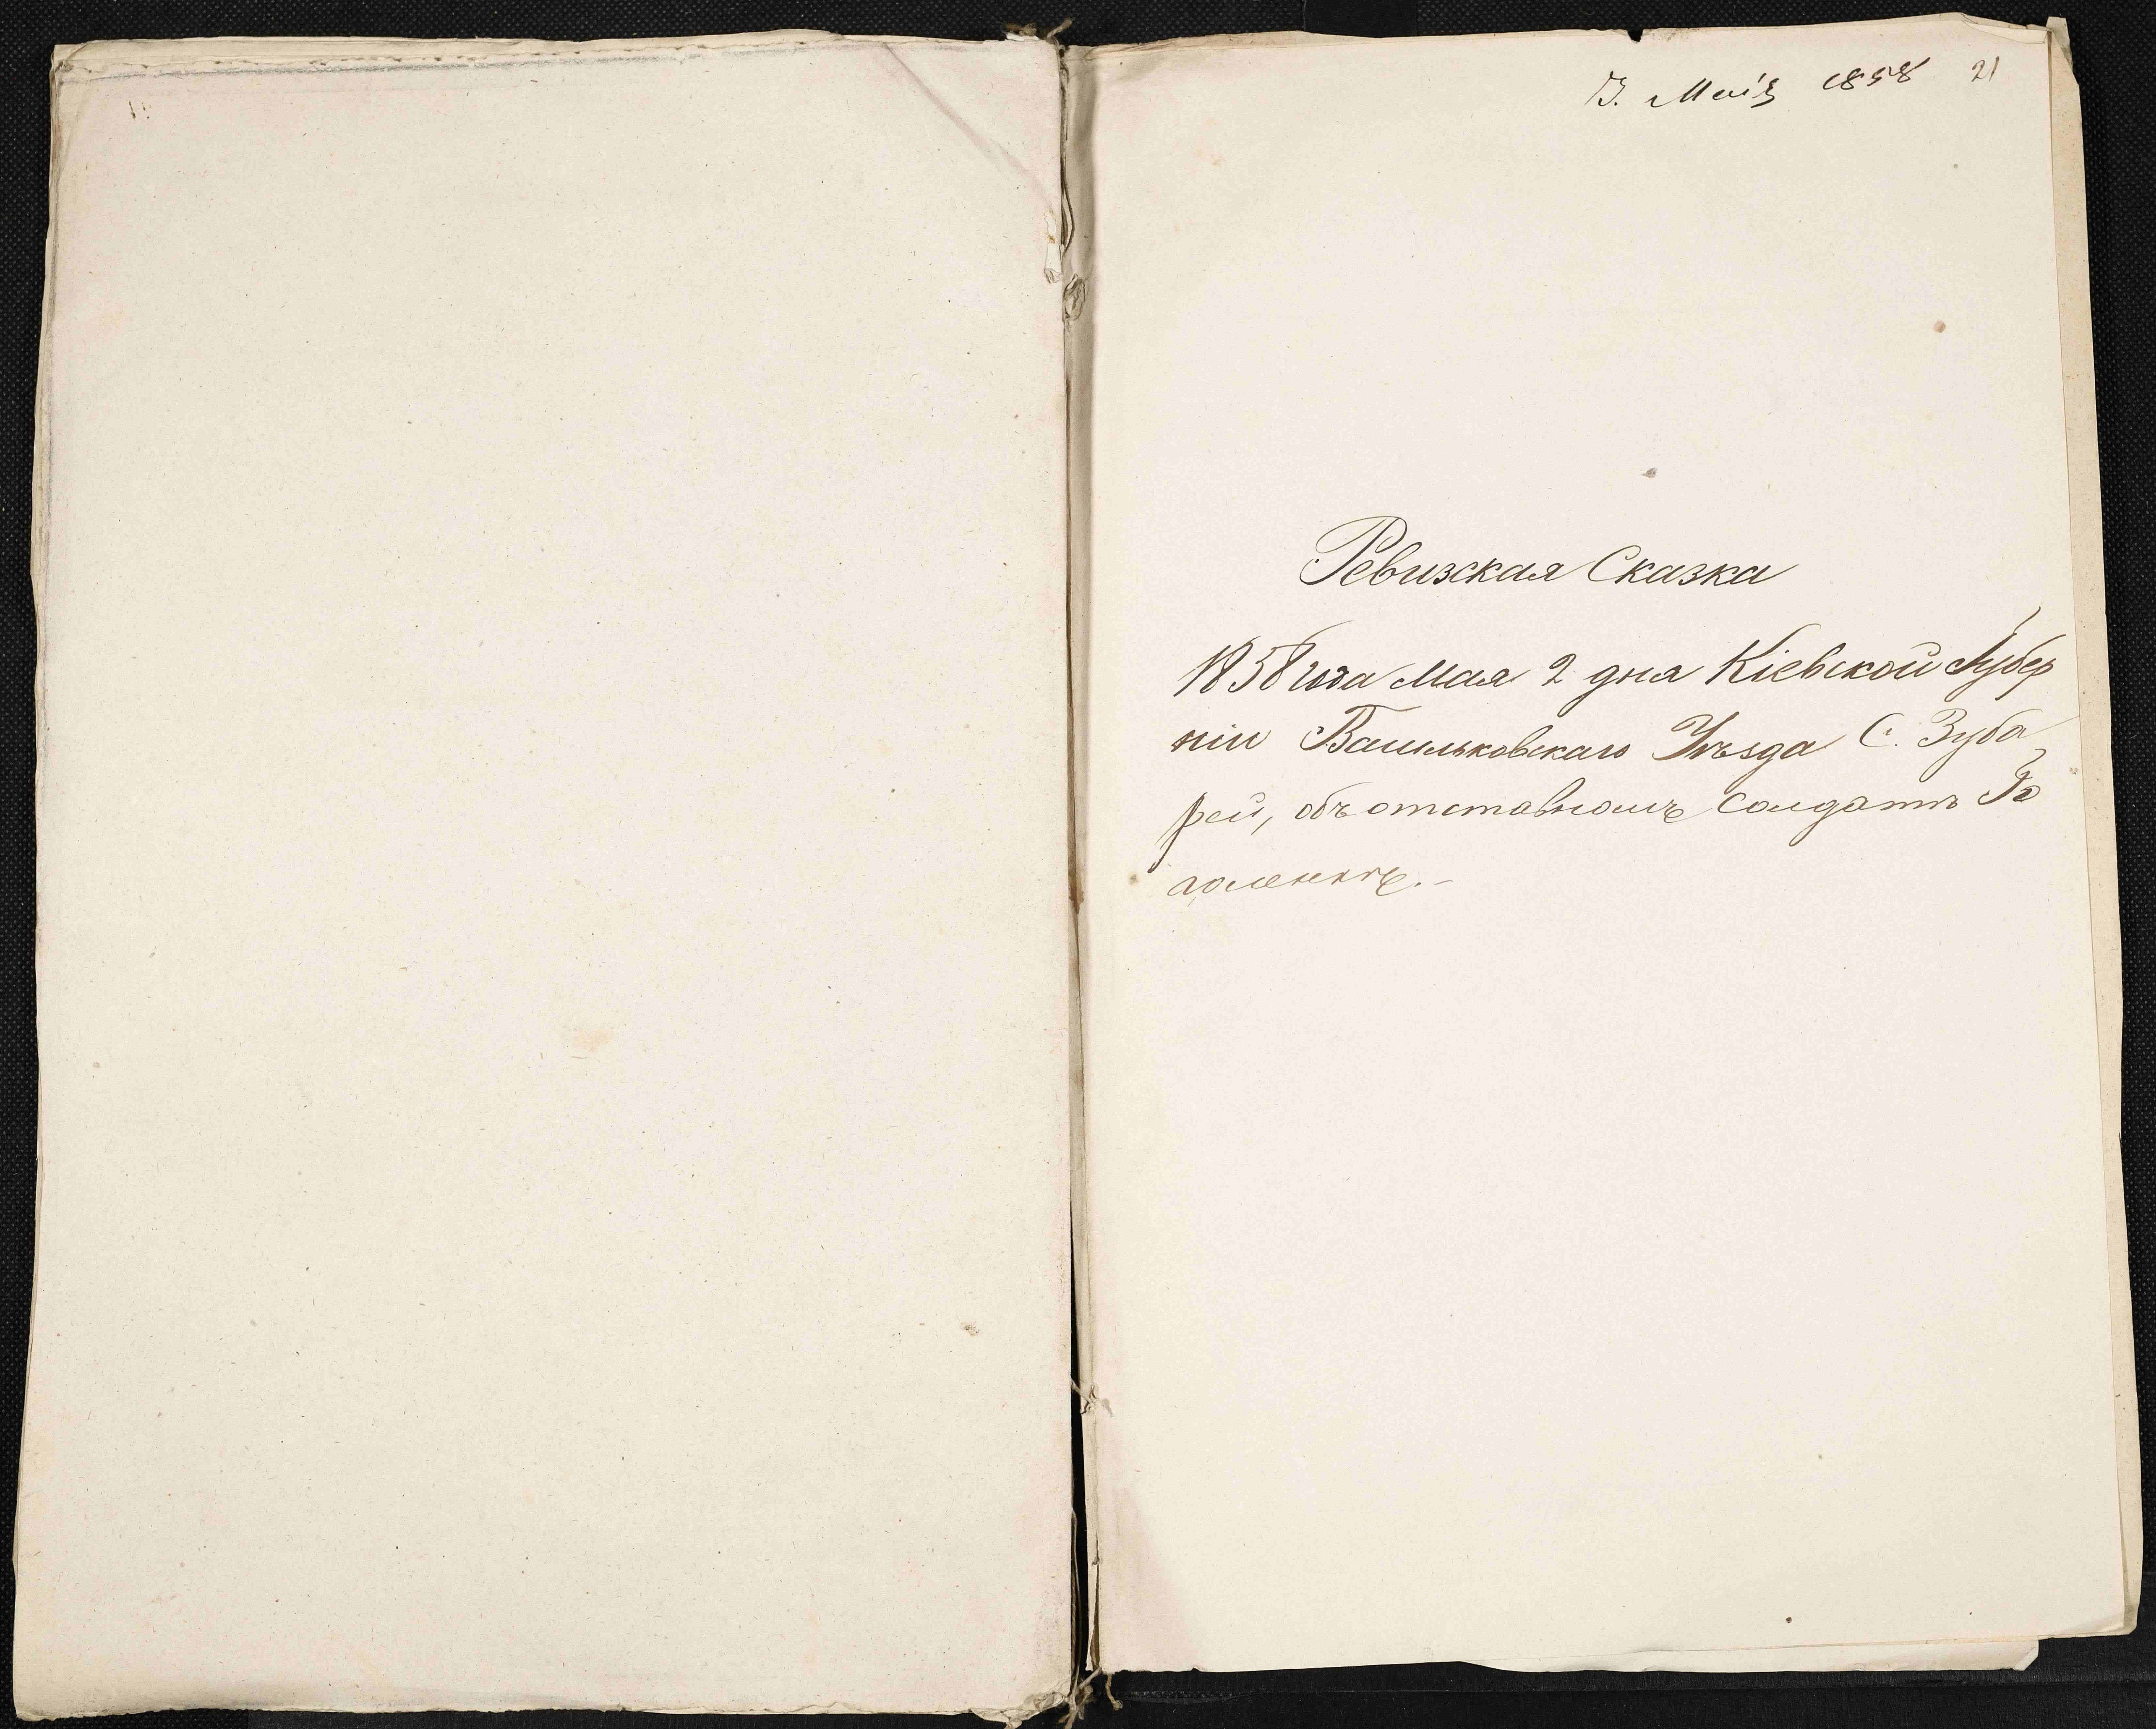 Мая 1858 21
Ревизская Сказка
1858 года Мая 2 дня Кіевской Губер
ніи Васильковскаго Уѣзда С. Зуба
рей, объ отставномъ солдатѣ